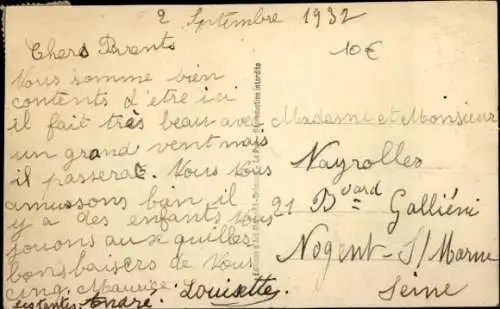 2 Septembre 1932
10€
Chers Parents
Vous somme bien
contents d'etre ici
il fait très beau avec
un grand vent mais
il passerat. Vous Vous
amussons bain il
y a des enfants vous
jouons aux quilles
bons baisers de Vous
cinq. Maurice.
André. Louisette
Madame et Monsieur
Nayrolles
21 Bvard Galliéni
Nogent-S/Marne
Seine
Reproduction interdite